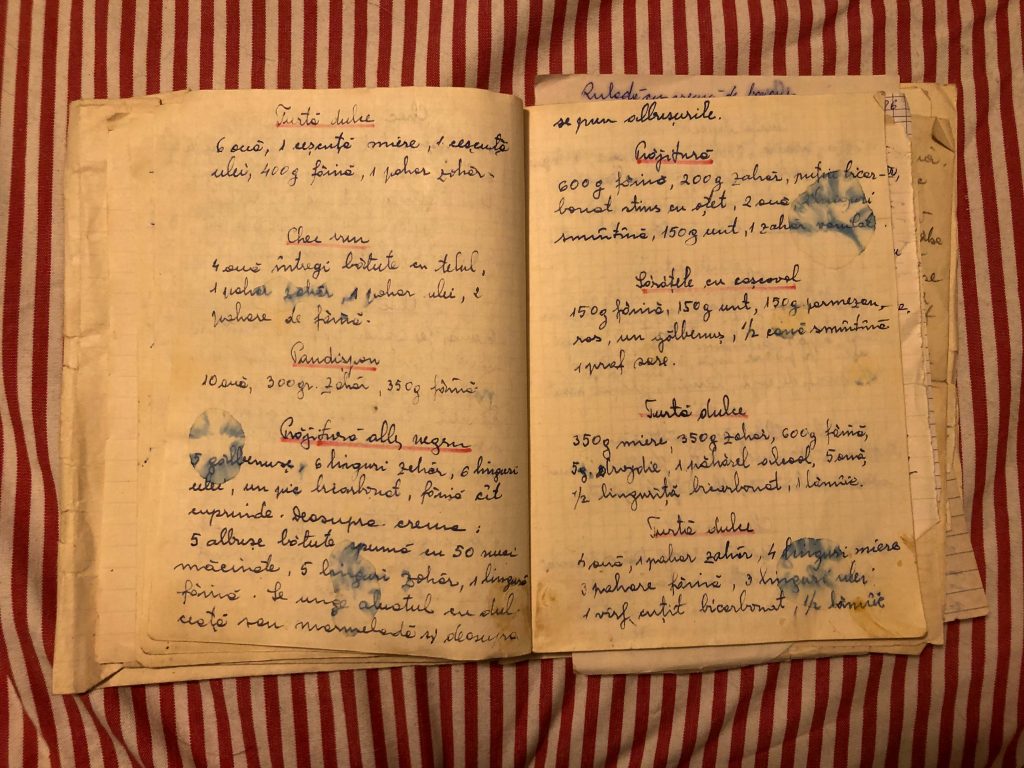 Turtă dulce
6 ouă, 1 ceșcuță miere, 1 ceșcuță
ulei, 400g făină, 1 pahar zahăr.
Chec
4 ouă întregi bătute cu telul,
1 pahar zahăr, 1 pahar ulei, 2
pahare de făină.
Pandișpan
10 ouă, 300gr. zahăr, 350g făină
Prăjitură negru
5 gălbenușe, 6 linguri zahăr, 6 linguri
ulei, un pic bicarbonat, făină cît
cuprinde. Deasupra crema:
5 albușe bătute spumă cu 50 nuci
măcinate, 5 linguri zahăr, 1 lingură
făină. Se unge aluatul cu dul-
ceață sau marmeladă și deasupra
Ruladă cu cremă de
se pun albușurile.
Prăjitură
600g făină, 200g zahăr, puțin bicar-
bonat stins cu oțet, 2 ouă, linguri
smîntînă, 150g unt, 1 zahăr vanilat.
Sărățele cu cașcaval
150g făină, 150g unt, 150g parmezan,
ras, un gălbenuș, 1/2 cană smîntînă
1 praf sare.
Turtă dulce
350g miere, 350g zahăr, 600g făină,
5g drojdie, 1 păhărel alcool, 5 ouă,
1/2 linguriță bicarbonat, 1 lămîie.
Turtă dulce
4 ouă, 1 pahar zahăr, 4 linguri miere
3 pahare făină, 3 linguri ulei
1 vîrf cuțit bicarbonat, 1/2 lămîie